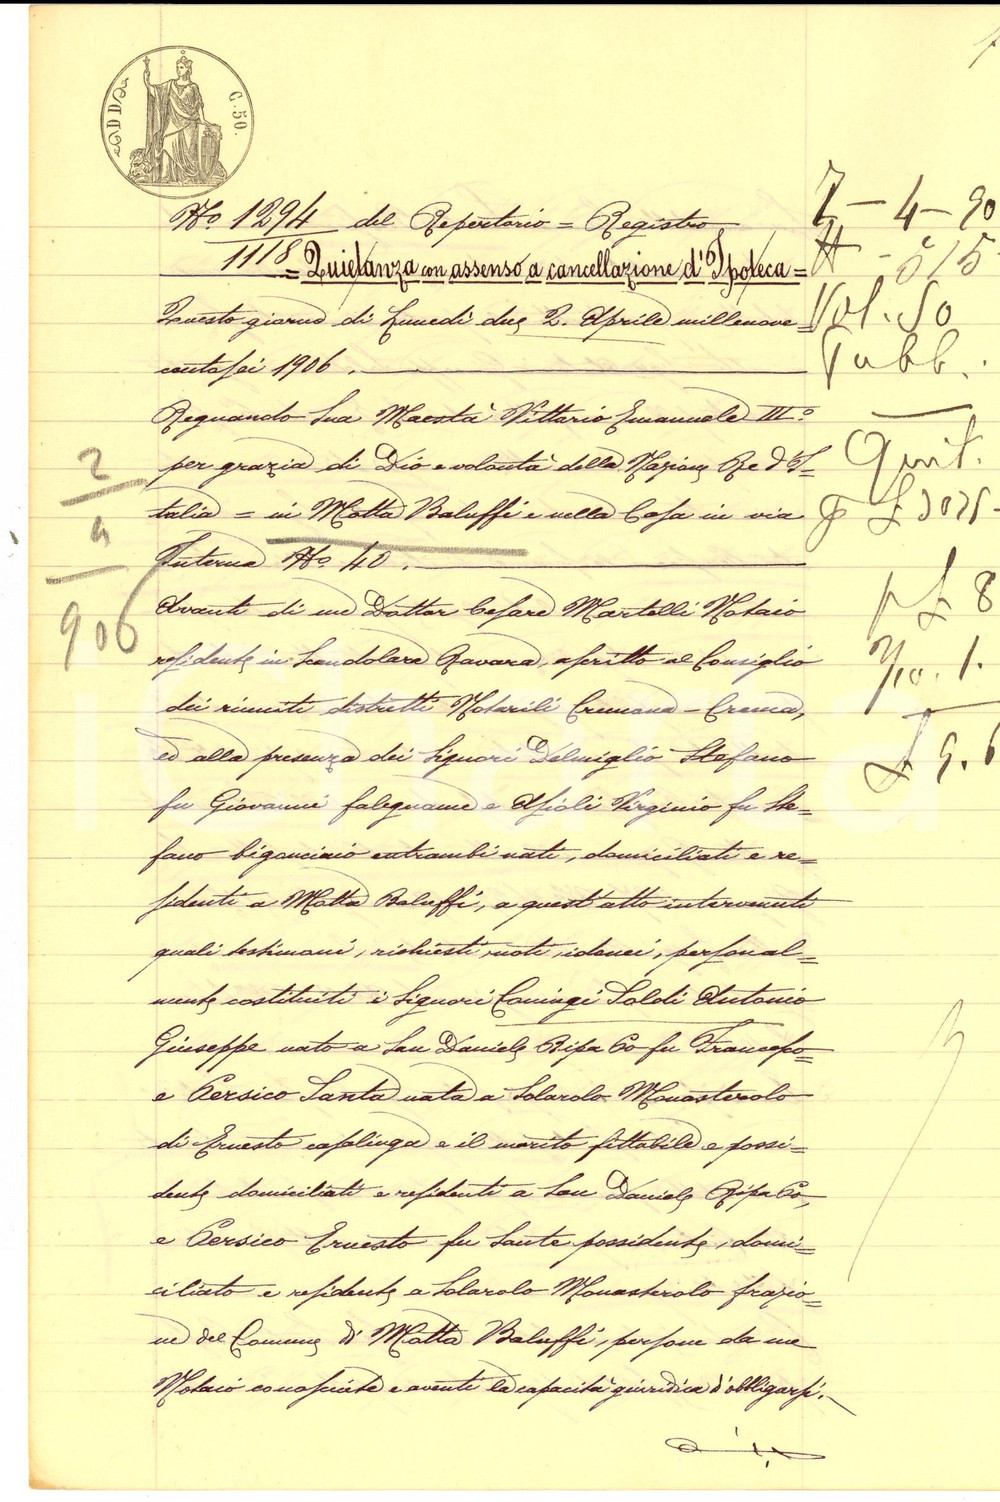 C. 50.
No. 1294 del Repertorio = Registro
1118 = Quietanza con assenso a cancellazione d'Ipoteca =
Questo giorno di Lunedì due 2. Aprile millenove=
centosei 1906.
Regnando Sua Maestà Vittorio Emanuele III°
per grazia di Dio e volontà della Nazione Re d'I=
talia = in Motta Baluffi e nella Casa in via
Interna No. 40.
Avanti di me Dottor Cesare Martelli Notaio
residente in Scandolara Ravara, ascritto al Consiglio
dei riuniti distretti Notarili Cremona - Crema,
ed alla presenza dei Signori Delmiglio Stefano
fu Giovanni falegname e Asioli Virginio fu Ste=
fano bigonciaio entrambi nati, domiciliati e re=
sidenti a Motta Baluffi, a quest'atto intervenuti
quali testimoni, richiesti, noti, idonei, personal=
mente costituiti i Signori Coniugi Soldi Antonio
Giuseppe nato a San Daniele Ripa Po fu Francesco
e Persico Santa nata a Solarolo Monasterolo
di Ernesto casalinga e il marito fittabile e possi=
dente domiciliati e residenti a San Daniele Ripa Po,
e Persico Ernesto fu Sante possidente, domi=
ciliato e residente a Solarolo Monasterolo frazio=
ne del Comune di Motta Baluffi, persone da me
Notaio conosciute e aventi la capacità giuridica d'obbligarsi.
2
4
906
7 - 4 - 90
515
Vol. 50
Pubb.
Quit.
p £ 8
1.
£ 9.6